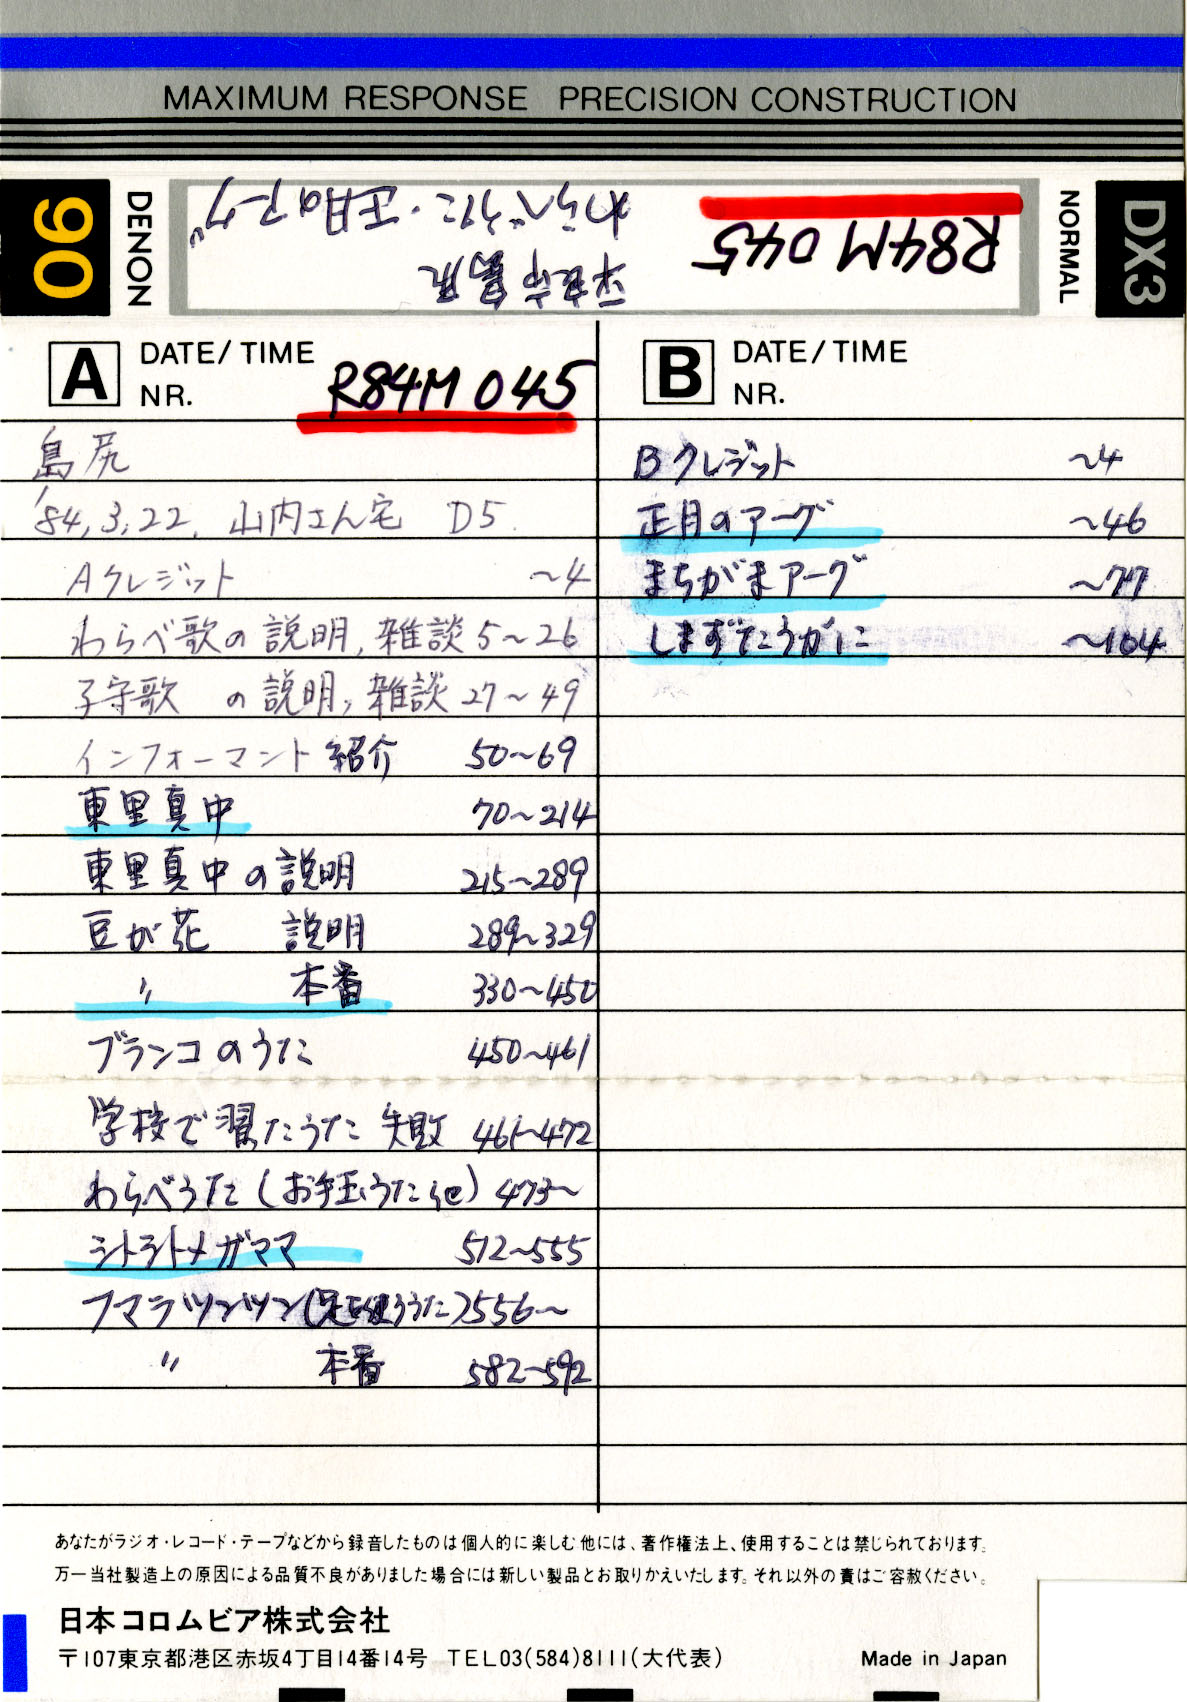 MAXIMUM RESPONSE PRECISION CONSTRUCTION
90
DENON
R84M045
平良市島尻
わらべうた・正月のアーグ
NORMAL
DX3
A DATE/TIME
NR. R84M045
島尻
'84,3,22, 山内さん宅 D5.
Aクレジット ~4
わらべ歌の説明,雑談 5~26
子守歌 の説明,雑談 27~49
インフォーマント紹介 50~69
東里真中 70~214
東里真中の説明 215~289
豆が花 説明 289~329
〃 本番 330~450
ブランコのうた 450~461
学校で習たうた 失敗 461~472
わらべうた(お手玉うた他) 473~
シトラトメガママ 512~555
フマラツンツン(足を使ううた) 556~
〃 本番 582~592
B DATE/TIME
NR.
Bクレジット ~4
正月のアーグ ~46
まちがまアーグ ~77
しまずたうがに ~104
あなたがラジオ・レコード・テープなどから録音したものは個人的に楽しむ他には、著作権法上、使用することは禁じられております。
万一当社製造上の原因による品質不良がありました場合には新しい製品とお取りかえいたします。それ以外の責はご容赦ください。
日本コロムビア株式会社
〒107東京都港区赤坂4丁目14番14号 TEL03(584)8111(大代表)
Made in Japan